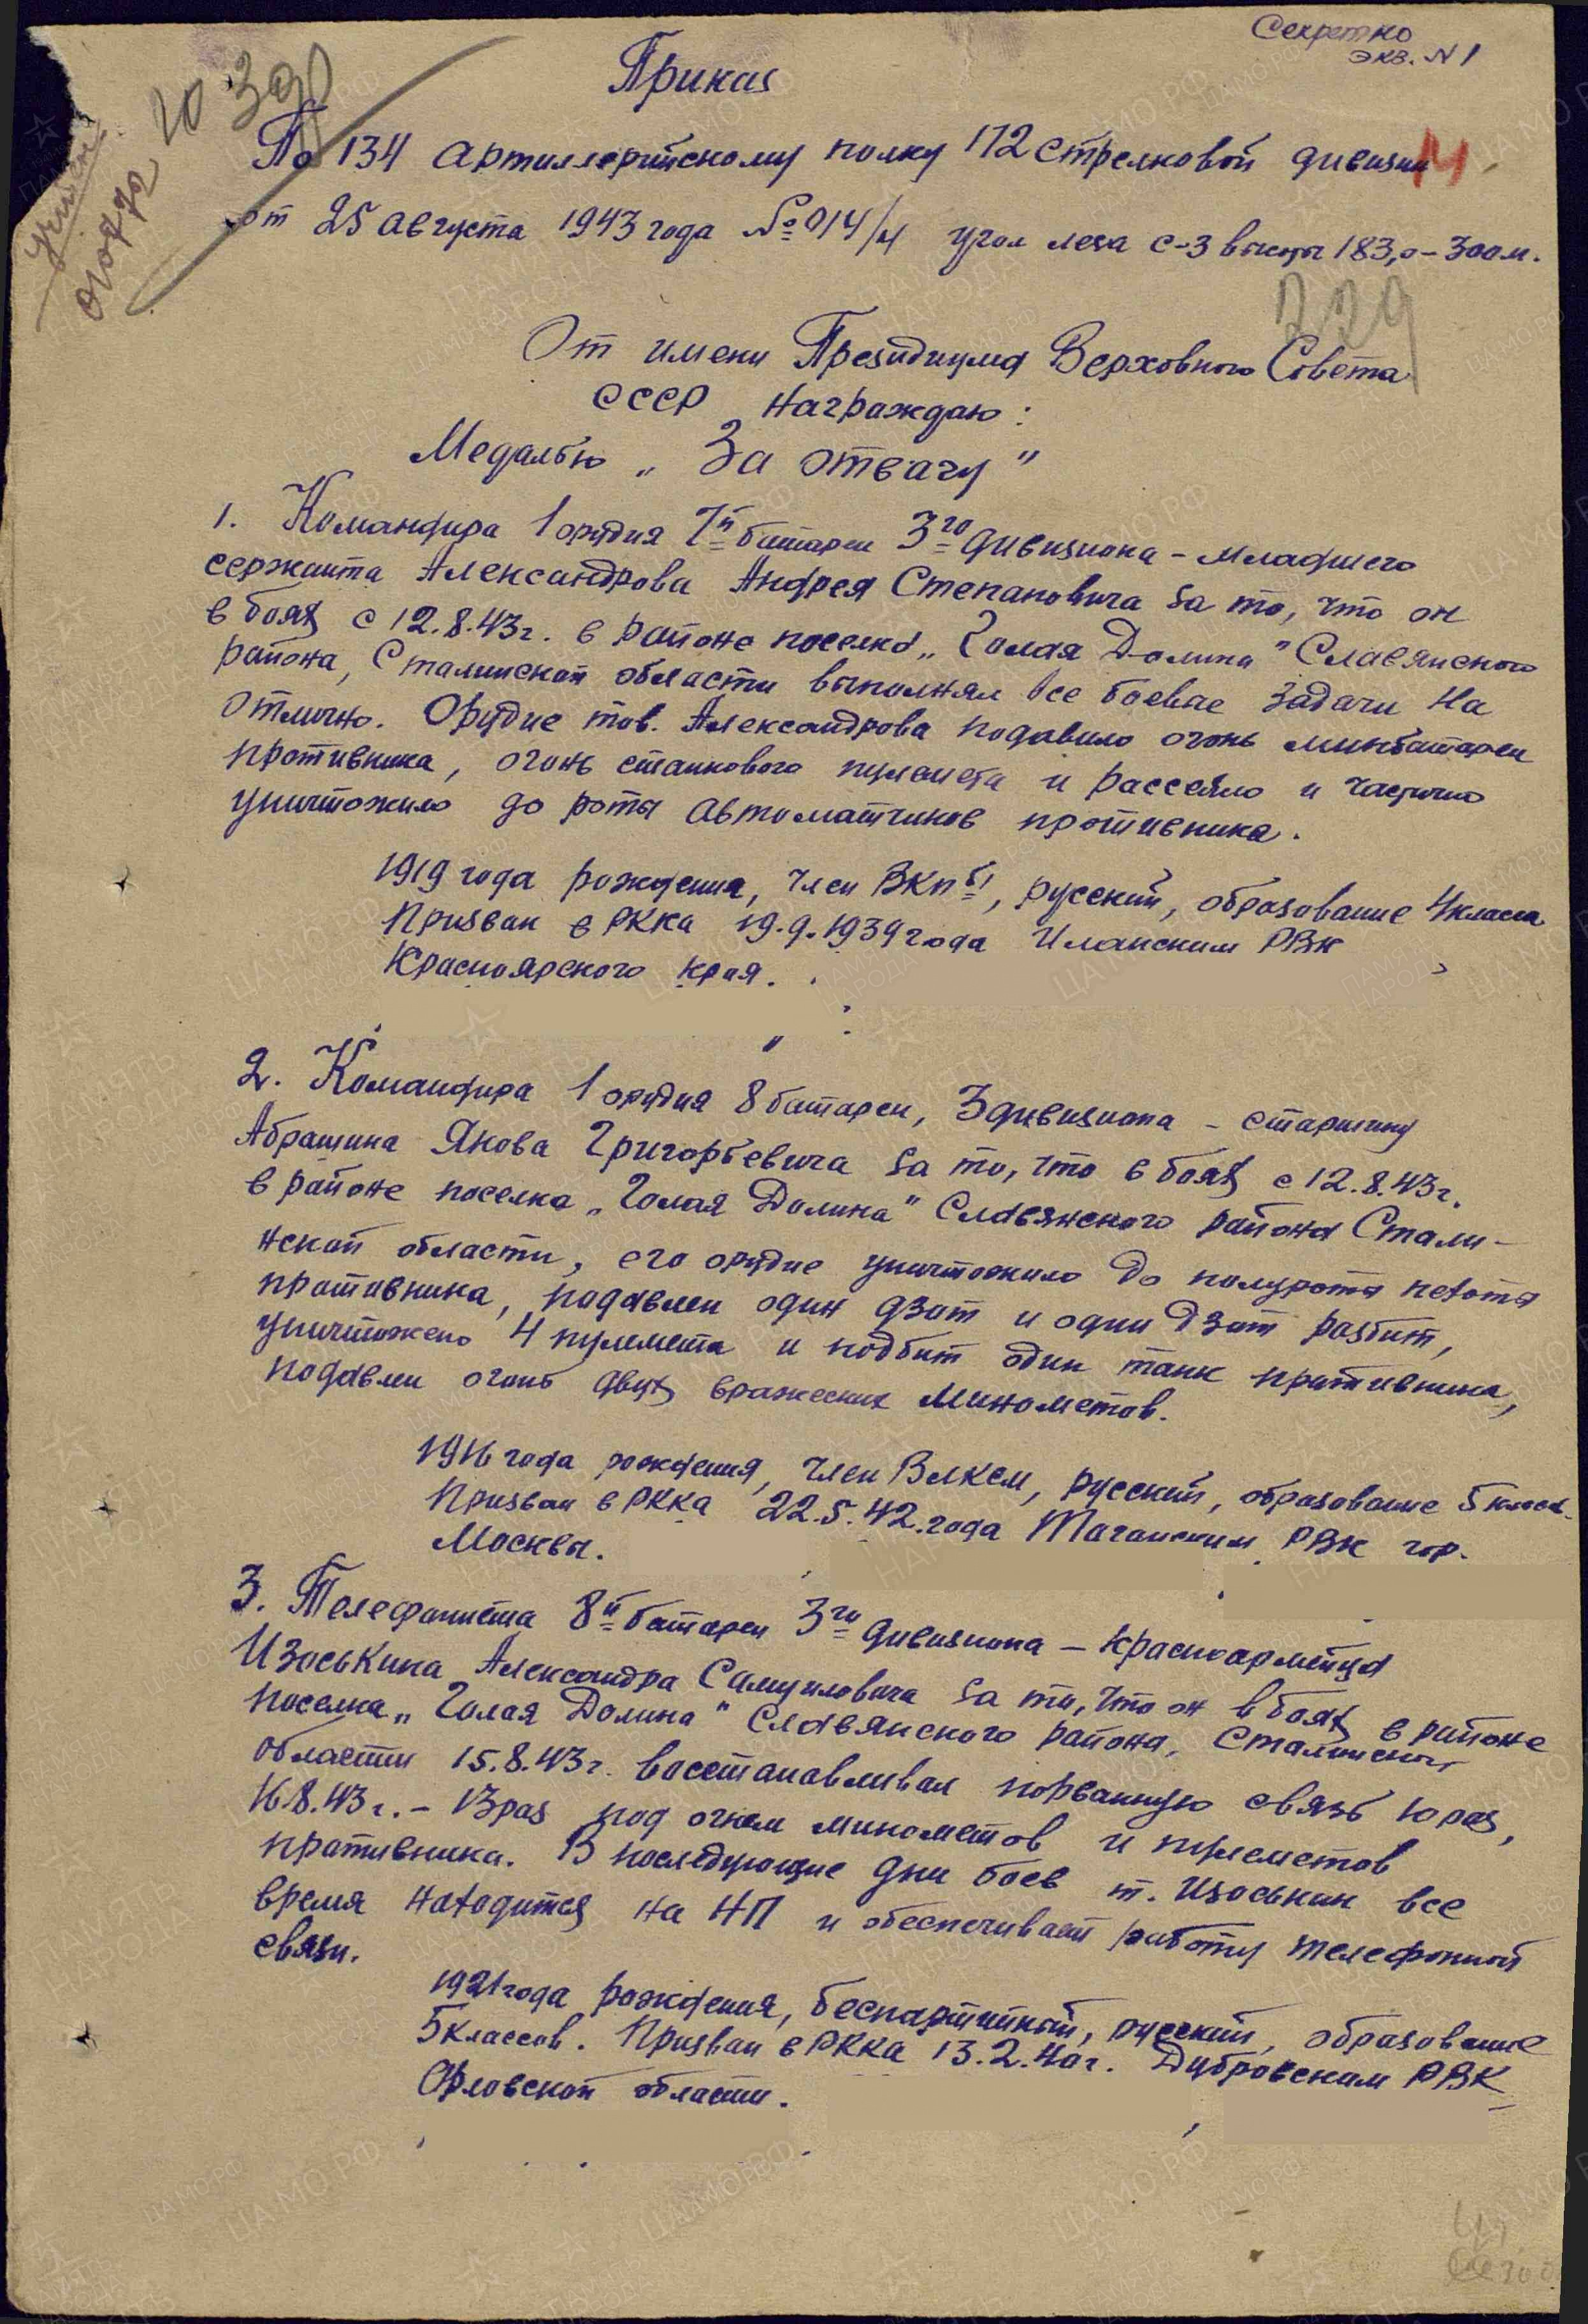 Секретно
экз. № 1
Приказ
По 134 артиллерийскому полку 172 стрелковой дивизии
от 25 августа 1943 года № 014/н угол леса с-з высоты 183,0 – 300 м.
229
От имени Президиума Верховного Совета
СССР награждаю:
Медалью „За отвагу"
1. Командира 1 орудия 7й батареи 3го дивизиона – младшего
сержанта Александрова Андрея Степановича за то, что он
в боях с 12.8.43г. в районе поселка „Голая Долина" Славянского
района, Сталинской области выполнял все боевые задачи на
отлично. Орудие тов. Александрова подавило огонь минбатареи
противника, огонь станкового пулемета и рассеяло и частично
уничтожило до роты автоматчиков противника.
1919 года рождения, член ВКП б/, русский, образование 4 класса
Призван в РККА 19.9.1939 года Иланским РВК
Красноярского края.
2. Командира 1 орудия 8 батареи, 3 дивизиона – старшину
Абрашина Якова Григорьевича за то, что в боях с 12.8.43г.
в районе поселка „Голая Долина" Славянского района Стали-
нской области, его орудие уничтожило до полуроты пехоты
противника, подавлен один дзот и один дзот разбит,
уничтожено 4 пулемета и подбит один танк противника,
подавлен огонь двух вражеских минометов.
1916 года рождения, член ВЛКСМ, русский, образование 5 класс.
Призван в РККА 22.5.42 года Таганским РВК гор.
Москвы.
3. Телефониста 8й батареи 3го дивизиона – красноармейца
Изоськина Александра Самуиловича за то, что он в боях в районе
поселка „Голая Долина" Славянского района, Сталинской
области 15.8.43г. восстанавливал порванную связь 10 раз,
16.8.43г. – 13 раз под огнем минометов и пулеметов
противника. В последующие дни боев т. Изоськин все
время находится на НП и обеспечивает работу телефонной
связи.
1921 года рождения, беспартийный, русский, образование
5 классов. Призван в РККА 13.2.40г. Дубровским РВК
Орловской области.